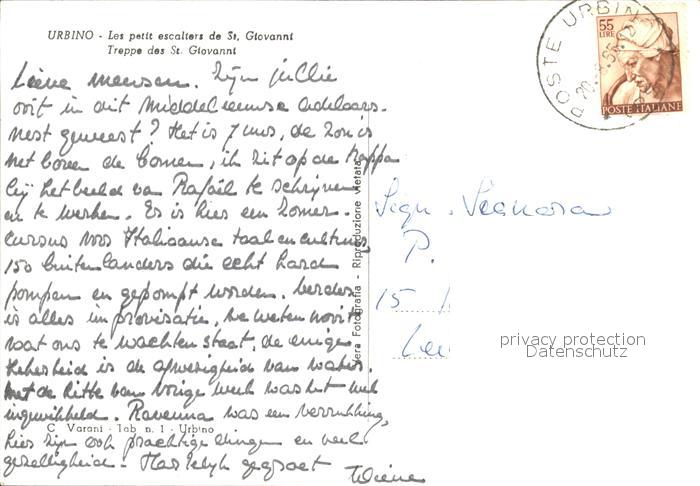 URBINO - Les petit escaliers de St. Giovanni
Treppe des St. Giovanni
Lieve mensen. Zijn jullie
ooit in dit middeleeuwse adelaars-
nest geweest? Het is 7 uur, de zon is
net boven de bomen, ik zit op de trappen
bij het beeld van Rafaël te schrijven
en te werken. Er is hier een zomer-
cursus voor Italiaanse taal en cultuur,
150 buitenlanders die echt hard
pompen en gepompt worden. Verder
is alles improvisatie, we weten nooit
wat ons te wachten staat, de enige
zekerheid is de afwezigheid van water.
Met de hitte van vorige week was het wel
ingewikkeld. Ravenna was een verrukking,
hier zijn ook prachtige dingen en veel
gezelligheid. Hartelijk gegroet
Wiene
C. Varani - Tab. n. 1 - Urbino
Vera Fotografia - Riproduzione vietata
POSTE URBINO
55
LIRE
POSTE ITALIANE
Sign. Signora
P.
15
privacy protection
Datenschutz